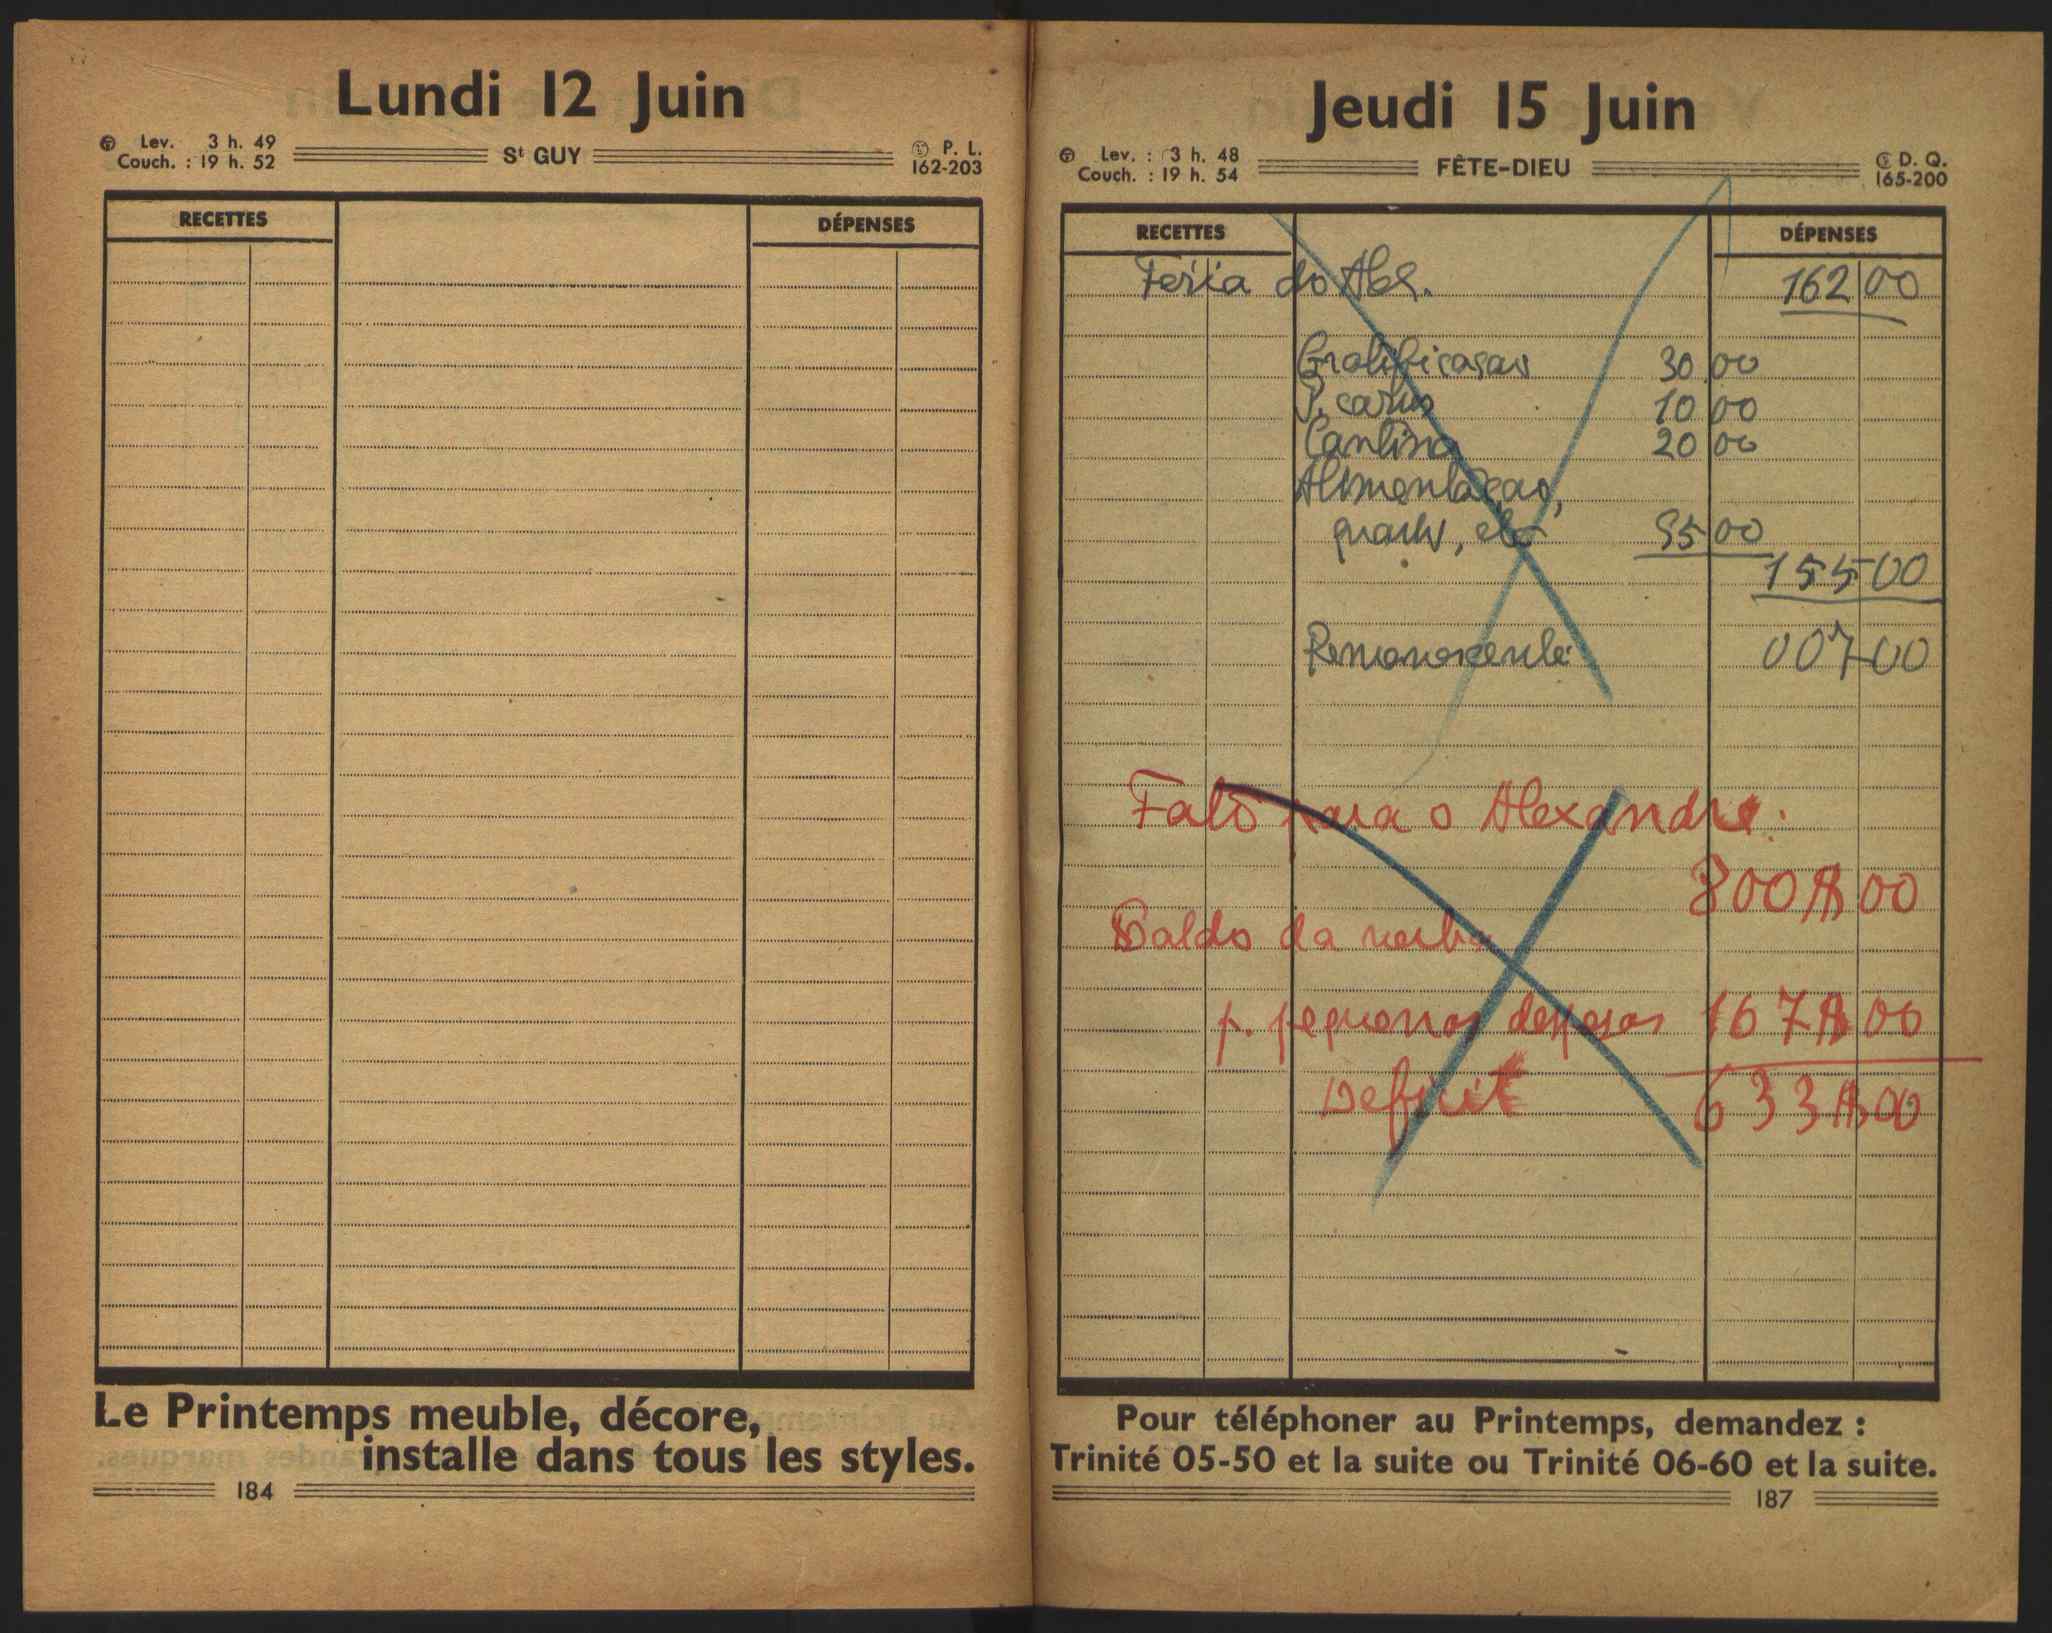 Lundi 12 Juin
Lev. 3 h. 49
Couch. : 19 h. 52
St GUY
P. L.
162-203
RECETTES
DÉPENSES
Le Printemps meuble, décore,
installe dans tous les styles.
184
Jeudi 15 Juin
Lev. : 3 h. 48
Couch. : 19 h. 54
FÊTE-DIEU
D. Q.
165-200
RECETTES
DÉPENSES
Feria do Alex. 162 00
Gratificasas 30 00
P. carus 10 00
Cantina 20 00
Alimentaçao,
etc 95 00
155 00
Remanescente 007 00
Fato para o Alexandre:
800$00
Saldo da verba
p. pequenas despesas 167$00
Deficit 633$00
Pour téléphoner au Printemps, demandez :
Trinité 05-50 et la suite ou Trinité 06-60 et la suite.
187